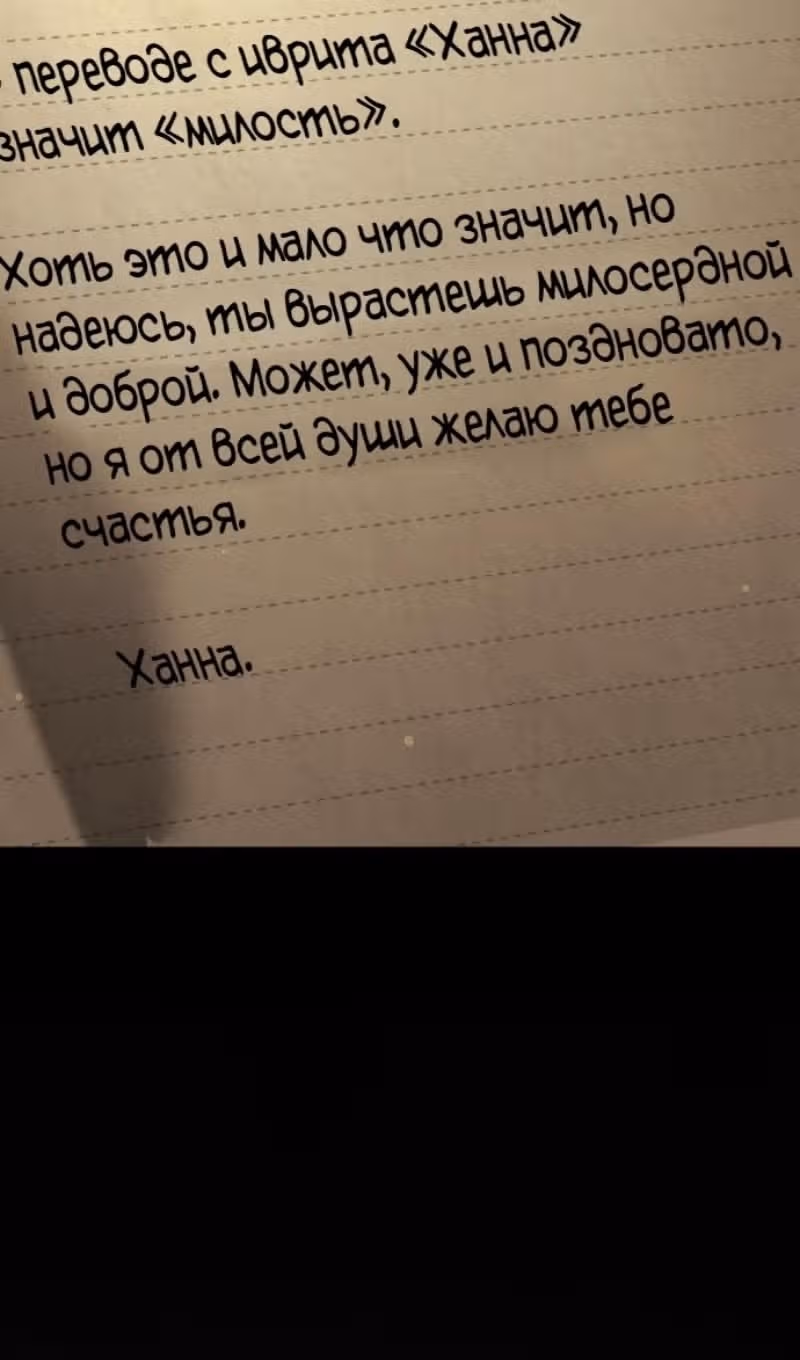 переводе с иврита «Ханна»
значит «милость».
Хоть это и мало что значит, но
надеюсь, ты вырастешь милосердной
и доброй. Может, уже и поздновато,
но я от всей души желаю тебе
счастья.
Ханна.